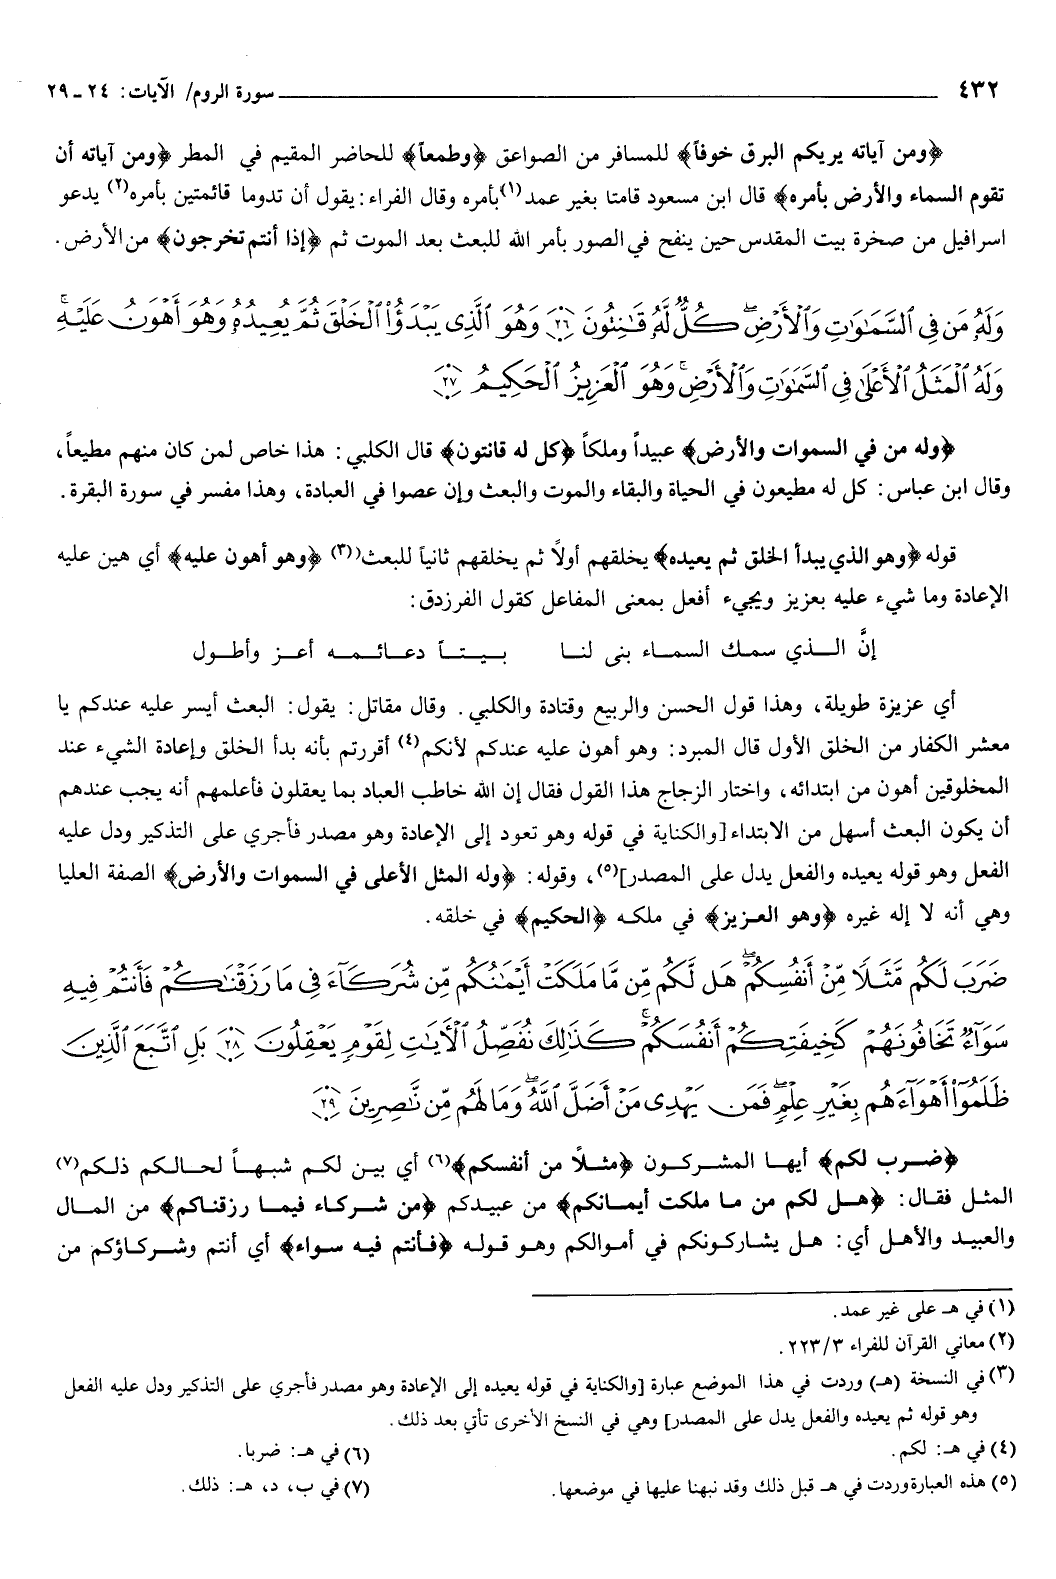 ٤٣٢ سورة الروم/ الآيات: ٢٤ ـ ٢٩
﴿ومن آياته يريكم البرق خوفاً﴾ للمسافر من الصواعق ﴿وطمعاً﴾ للحاضر المقيم في المطر ﴿ومن آياته أن
تقوم السماء والأرض بأمره﴾ قال ابن مسعود قامتا بغير عمد(١) بأمره وقال الفراء: يقول أن تدوما قائمتين بأمره(٢) يدعو
اسرافيل من صخرة بيت المقدس حين ينفح في الصور بأمر الله للبعث بعد الموت ثم ﴿إذا أنتم تخرجون﴾ من الأرض.
وَلَهُ مَن فِي ٱلسَّمَٰوَٰتِ وَٱلْأَرْضِۖ كُلٌّ لَّهُۥ قَٰنِتُونَ ٢٦ وَهُوَ ٱلَّذِي يَبْدَؤُا۟ ٱلْخَلْقَ ثُمَّ يُعِيدُهُۥ وَهُوَ أَهْوَنُ عَلَيْهِۚ
وَلَهُ ٱلْمَثَلُ ٱلْأَعْلَىٰ فِي ٱلسَّمَٰوَٰتِ وَٱلْأَرْضِۚ وَهُوَ ٱلْعَزِيزُ ٱلْحَكِيمُ ٢٧
﴿وله من في السموات والأرض﴾ عبيداً وملكاً ﴿كل له قانتون﴾ قال الكلبي: هذا خاص لمن كان منهم مطيعاً،
وقال ابن عباس: كل له مطيعون في الحياة والبقاء والموت والبعث وإن عصوا في العبادة، وهذا مفسر في سورة البقرة.
قوله ﴿وهو الذي يبدأ الخلق ثم يعيده﴾ يخلقهم أولاً ثم يخلقهم ثانياً للبعث(٣) ﴿وهو أهون عليه﴾ أي هين عليه
الإعادة وما شيء عليه بعزيز ويجيء أفعل بمعنى المفاعل كقول الفرزدق:
إنَّ الـذي سمك السماء بنى لنا بيتاً دعائمه أعز وأطول
أي عزيزة طويلة، وهذا قول الحسن والربيع وقتادة والكلبي. وقال مقاتل: يقول: البعث أيسر عليه عندكم يا
معشر الكفار من الخلق الأول قال المبرد: وهو أهون عليه عندكم لأنكم(٤) أقررتم بأنه بدأ الخلق وإعادة الشيء عند
المخلوقين أهون من ابتدائه، واختار الزجاج هذا القول فقال إن الله خاطب العباد بما يعقلون فأعلمهم أنه يجب عندهم
أن يكون البعث أسهل من الابتداء [والكناية في قوله وهو تعود إلى الإعادة وهو مصدر فأجري على التذكير ودل عليه
الفعل وهو قوله يعيده والفعل يدل على المصدر](٥)، وقوله: ﴿وله المثل الأعلى في السموات والأرض﴾ الصفة العليا
وهي أنه لا إله غيره ﴿وهو العزيز﴾ في ملكه ﴿الحكيم﴾ في خلقه.
ضَرَبَ لَكُم مَّثَلًا مِّنْ أَنفُسِكُمْۖ هَل لَّكُم مِّن مَّا مَلَكَتْ أَيْمَٰنُكُم مِّن شُرَكَآءَ فِي مَا رَزَقْنَٰكُمْ فَأَنتُمْ فِيهِ
سَوَآءٌ تَخَافُونَهُمْ كَخِيفَتِكُمْ أَنفُسَكُمْۚ كَذَٰلِكَ نُفَصِّلُ ٱلْآيَٰتِ لِقَوْمٍ يَعْقِلُونَ ٢٨ بَلِ ٱتَّبَعَ ٱلَّذِينَ
ظَلَمُوٓا۟ أَهْوَآءَهُم بِغَيْرِ عِلْمٍۖ فَمَن يَهْدِي مَنْ أَضَلَّ ٱللَّهُۖ وَمَا لَهُم مِّن نَّٰصِرِينَ ٢٩
﴿ضرب لكم﴾ أيها المشركون ﴿مثلاً من أنفسكم﴾(٦) أي بين لكم شبهاً لحالكم ذلكم(٧)
المثل فقال: ﴿هل لكم من ما ملكت أيمانكم﴾ من عبيدكم ﴿من شركاء فيما رزقناكم﴾ من المال
والعبيد والأهل أي: هل يشاركونكم في أموالكم وهو قوله ﴿فأنتم فيه سواء﴾ أي أنتم وشركاؤكم من
(١) في هـ على غير عمد.
(٢) معاني القرآن للفراء ٢٢٣/٣.
(٣) في النسخة (هـ) وردت في هذا الموضع عبارة [والكناية في قوله يعيده إلى الإعادة وهو مصدر فأجري على التذكير ودل عليه الفعل
وهو قوله ثم يعيده والفعل يدل على المصدر] وهي في النسخ الأخرى تأتي بعد ذلك.
(٤) في هـ: لكم. (٦) في هـ: ضربا.
(٥) هذه العبارة وردت في هـ قبل ذلك وقد نبهنا عليها في موضعها. (٧) في ب، د، هـ: ذلك.